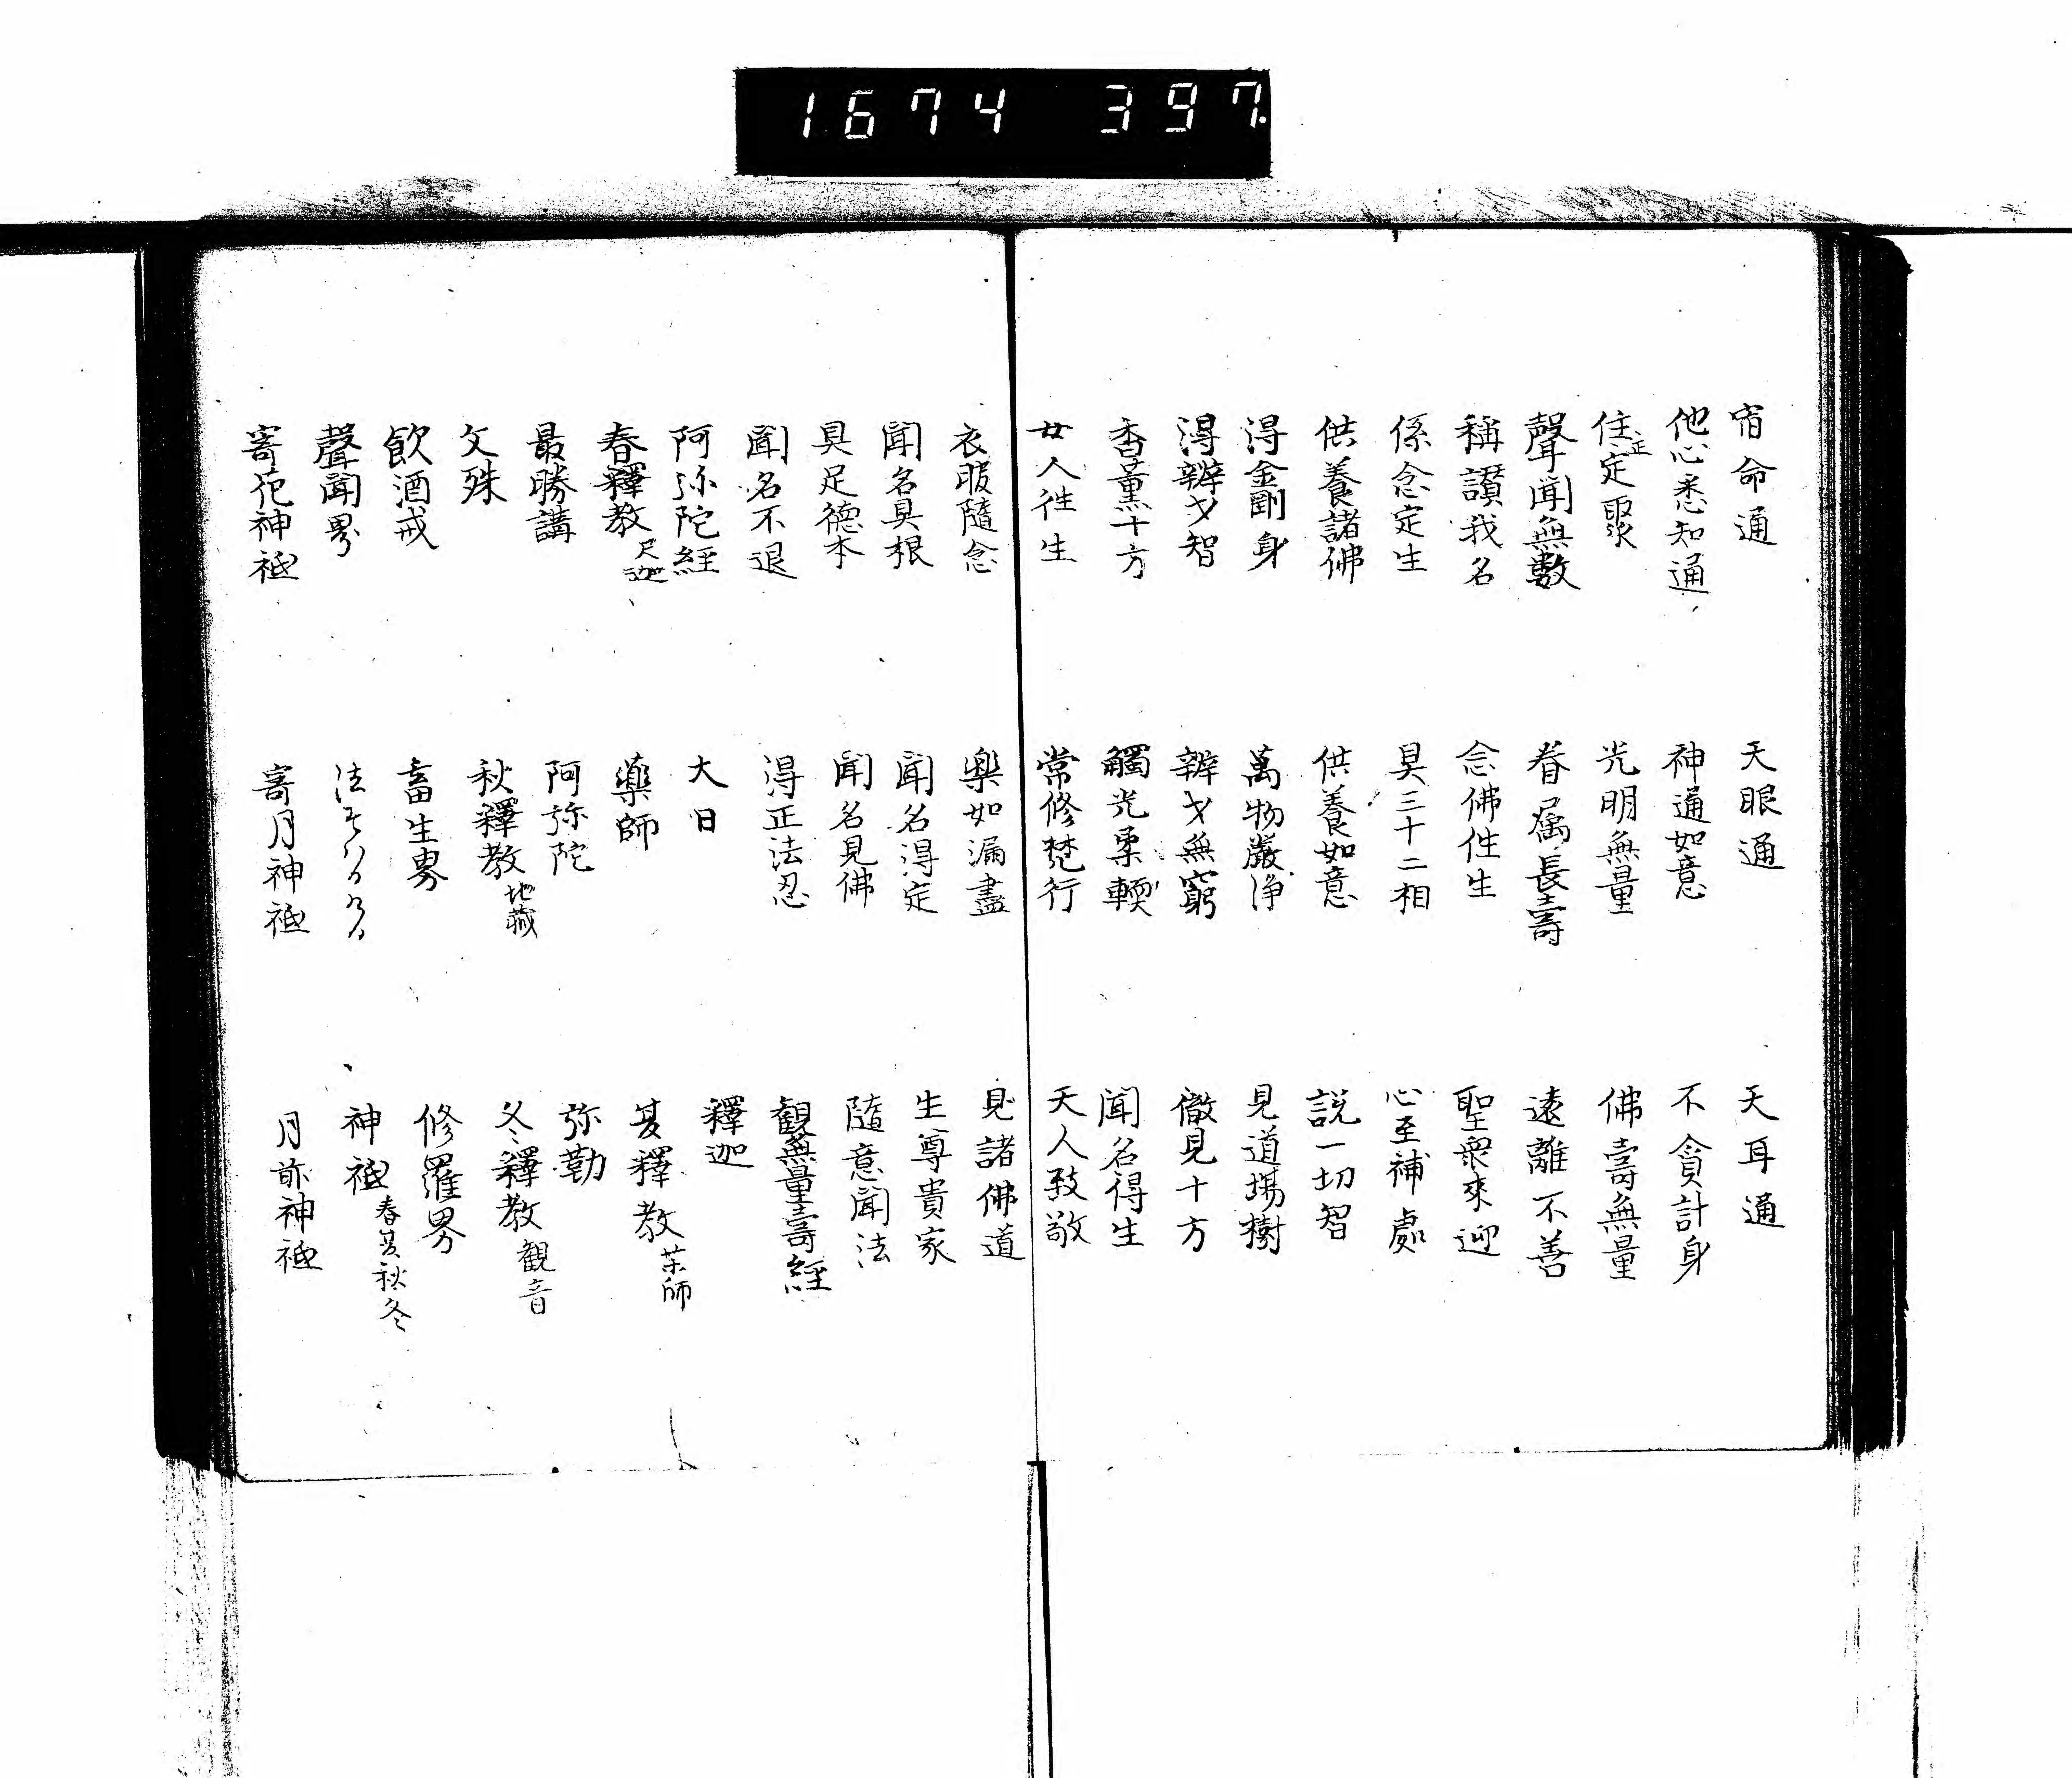 1674 397
宿命通 天眼通 天耳通
他心悉知通 神通如意 不貪計身
住正定聚 光明無量 佛壽無量
聲聞無數 眷属長壽 遠離不善
稱讃我名 念佛往生 聖衆來迎
係念定生 具三十二相 必至補處
供養諸佛 供養如意 説一切智
得金剛身 萬物嚴浄 見道場樹
得辨才智 辨才無窮 徹見十方
香薫十方 觸光柔輭 聞名得生
女人往生 常修梵行 天人致敬
衣服隨念 樂如漏盡 見諸佛道
聞名具根 聞名得定 生尊貴家
具足德本 聞名見佛 隨意聞法
聞名不退 得正法忍 観無量壽経
阿弥陀経 大日 釋迦
春釋教尺迦 藥師 夏釋教茶師
最勝講 阿弥陀 弥勒
文殊 秋釋教地藏 冬釋教観音
飲酒戒 畜生界 修羅界
聲聞界 法 神祇春夏秋冬
寄花神祇 寄月神祇 月前神祇